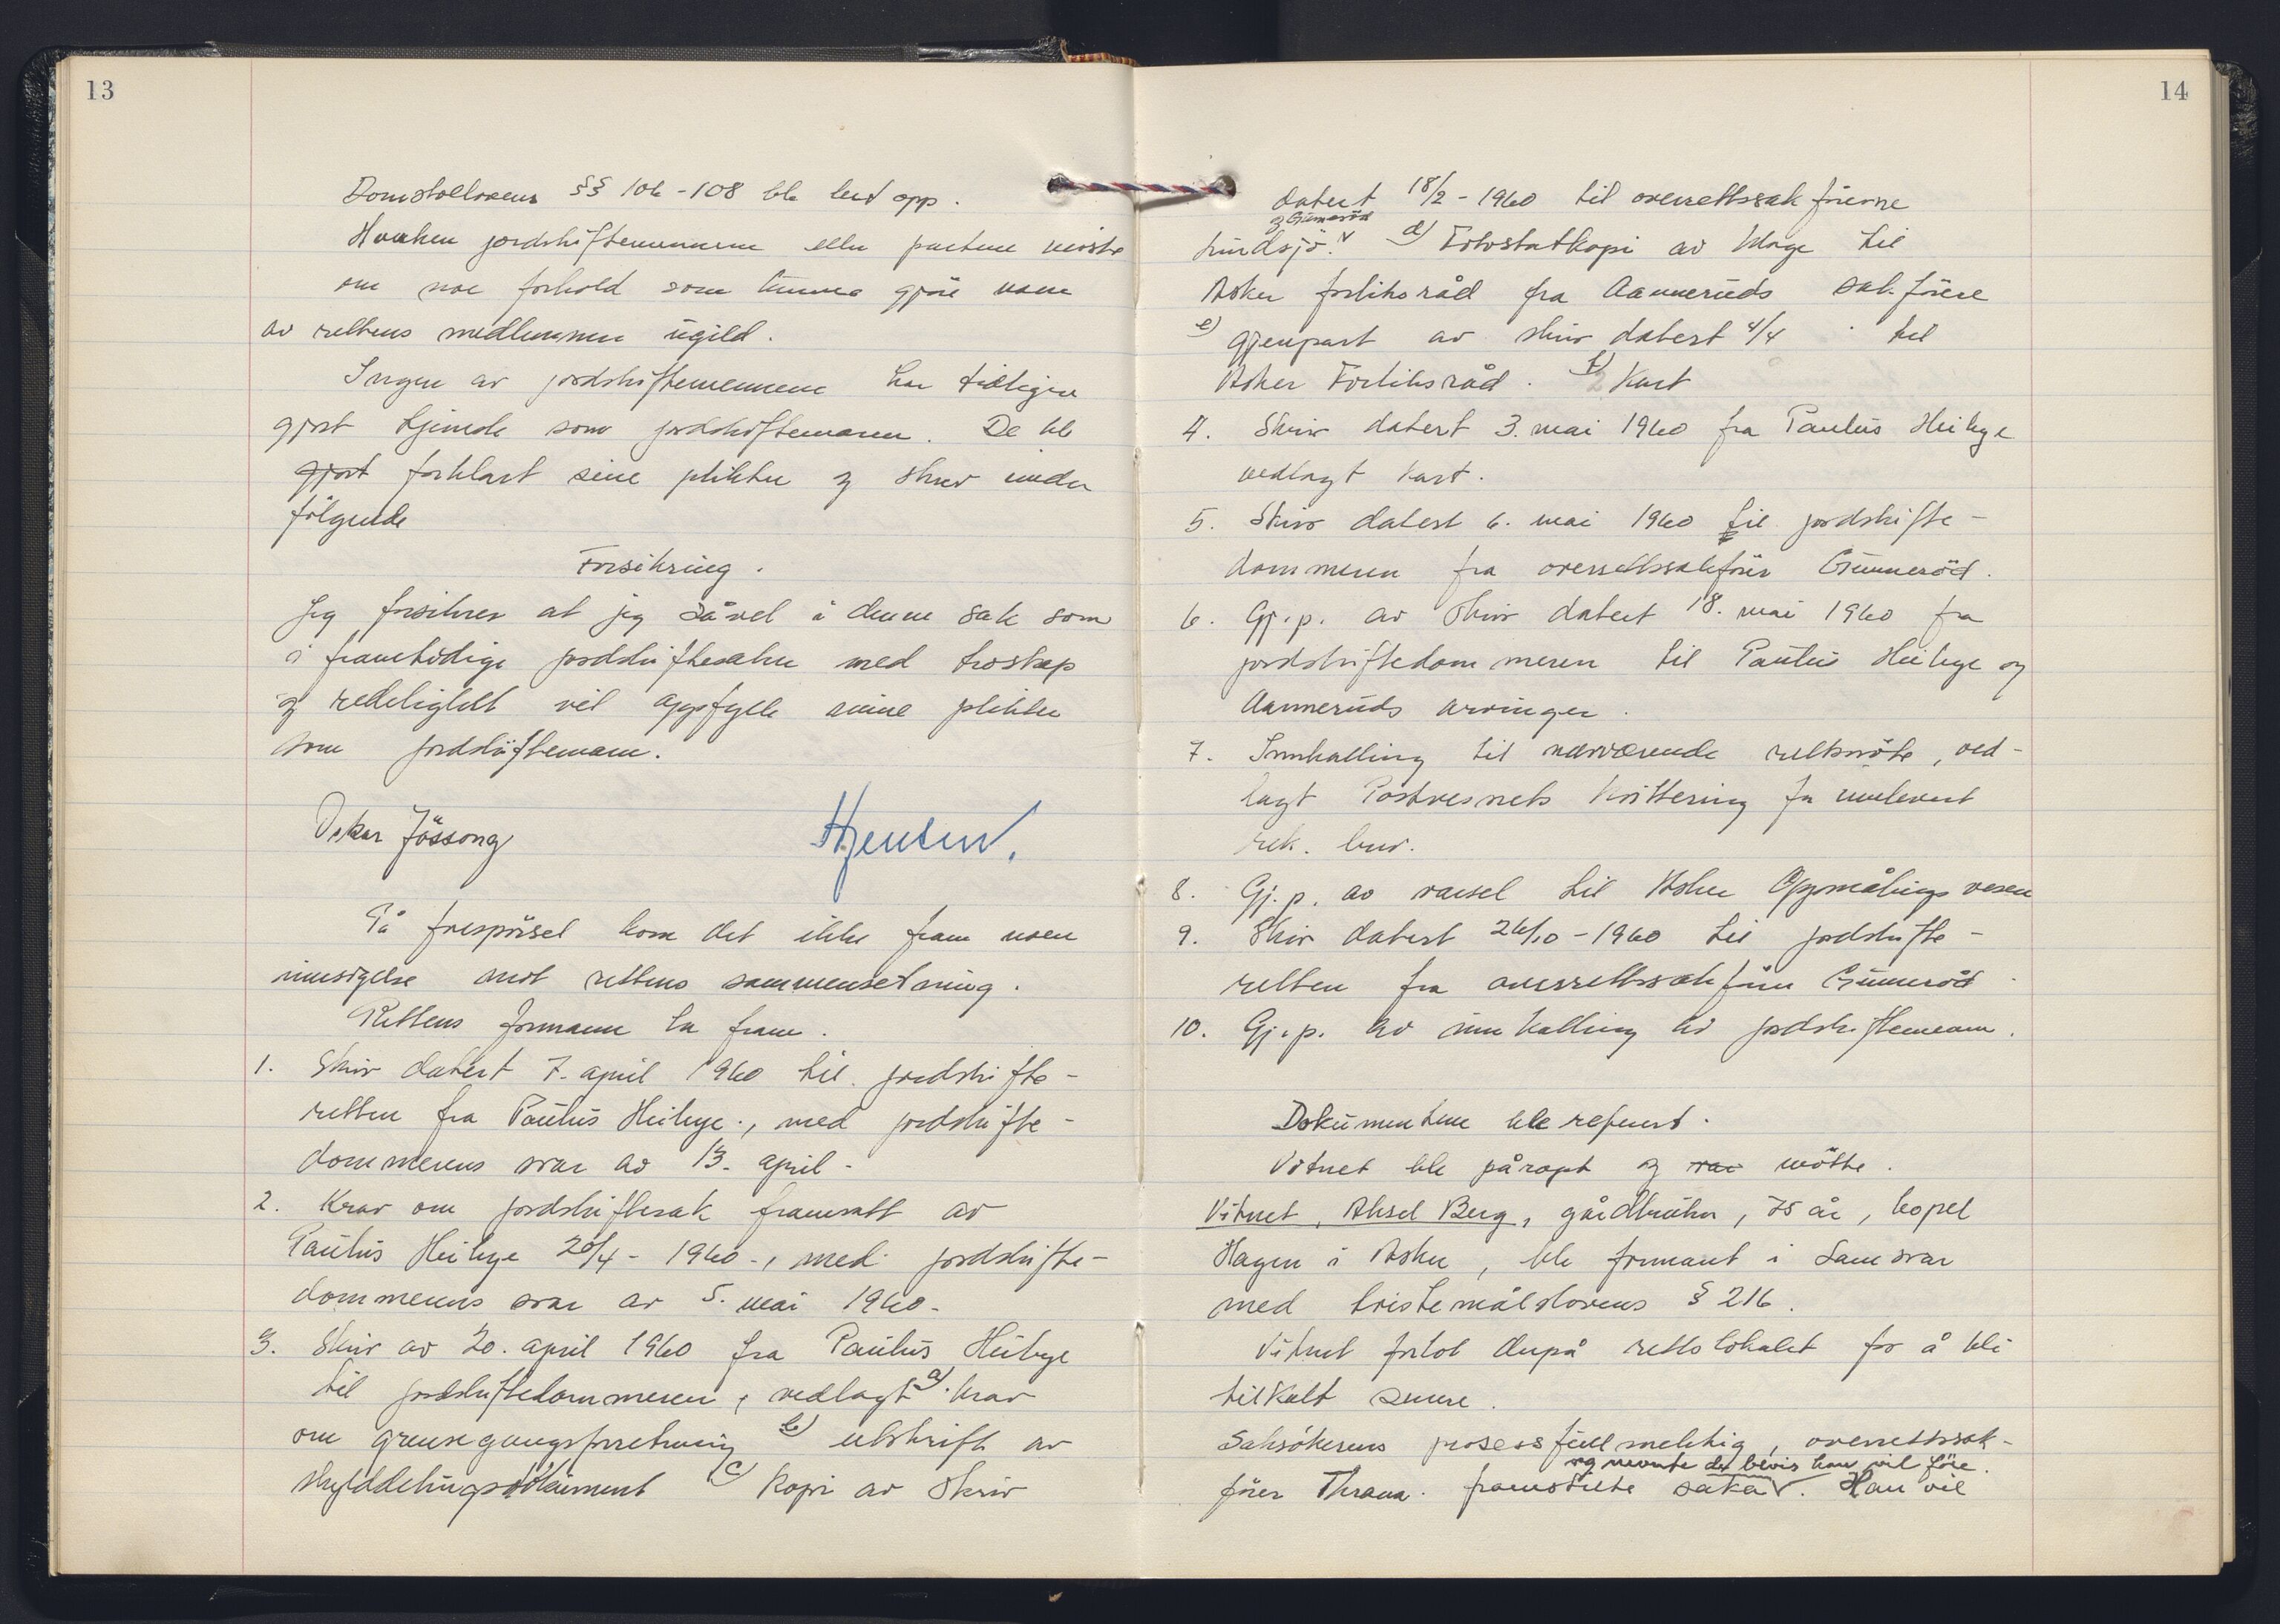 13
Domstollovens §§ 106-108 ble lest opp.
Hverken jordskiftemennene eller partene visste
om noe forhold som kunne gjøre noen
av rettens medlemmer ugild.
Ingen av jordskiftemennene har tidligere
gjort tjeneste som jordskiftemann. De ble
gjort forklart sine plikter og skrev under
følgende
Forsikring.
Jeg forsikrer at jeg såvel i denne sak som
i framtidige jordskiftesaker med troskap
og redelighet vil oppfylle mine plikter
som jordskiftemann.
Oskar Jössong
HJensen.
På forespørsel kom det ikke fram noen
innsigelse mot rettens sammensetning.
Rettens formann la fram.
1. Skriv datert 7. april 1960 til jordskifte-
retten fra Paulus Heibye., med jordskifte-
dommerens svar av 13. april.
2. Krav om jordskiftesak framsatt av
Paulus Heibye 20/4 - 1960 -, med jordskifte-
dommerens svar av 5. mai 1960.
3. Skriv av 20. april 1960 fra Paulus Heibye
til jordskiftedommeren, vedlagt a) krav
om grensegangsforretning b) utskrift av
skylddelingsdokument c) Kopi av skriv
14
datert 18/2 - 1960 til overrettssakførerne
og Gunnerød
Lundsjø. v d) Fotostatkopi av klage til
Asker forliksråd fra Aannerüds sakförere
e) Gjenpart av skriv datert 4/4 til
Asker Forliksråd. f) 2 Kart
4. Skriv datert 3. mai 1960 fra Paulus Heibye
vedlagt kart.
5. Skriv datert 6. mai 1960 til jordskifte-
dommeren fra overrettssakfører Gunnerød.
6. Gj.p. av skriv datert 18. mai 1960 fra
jordskiftedommeren til Paulus Heibye og
Aannerüds arvinger.
7. Innkalling til nærværende rettsmøte, ved-
lagt Postvesnets kvittering for innlevert
rek. brev.
8. Gj.p. av varsel til Asker Oppmålingsvesen
9. Skriv datert 26/10 - 1960 til jordskifte-
retten fra overrettssakfører Gunnerød
10. Gj.p. av innkalling av jordskiftemenn.
Dokumentene ble referert.
Vitnet ble påropt og var møtte.
Vitnet, Aksel Berg, gårdbruker, 75 år, bopel
Hagen i Asker, ble formant i samsvar
med tvistemålslovens § 216.
Vitnet forlot derpå rettslokalet for å bli
tilkalt senere.
Saksøkerens prosessfullmektig, overrettssak-
og nevnte det bevis han vil føre.
fører Thrana. framstilte saka v. Han vil